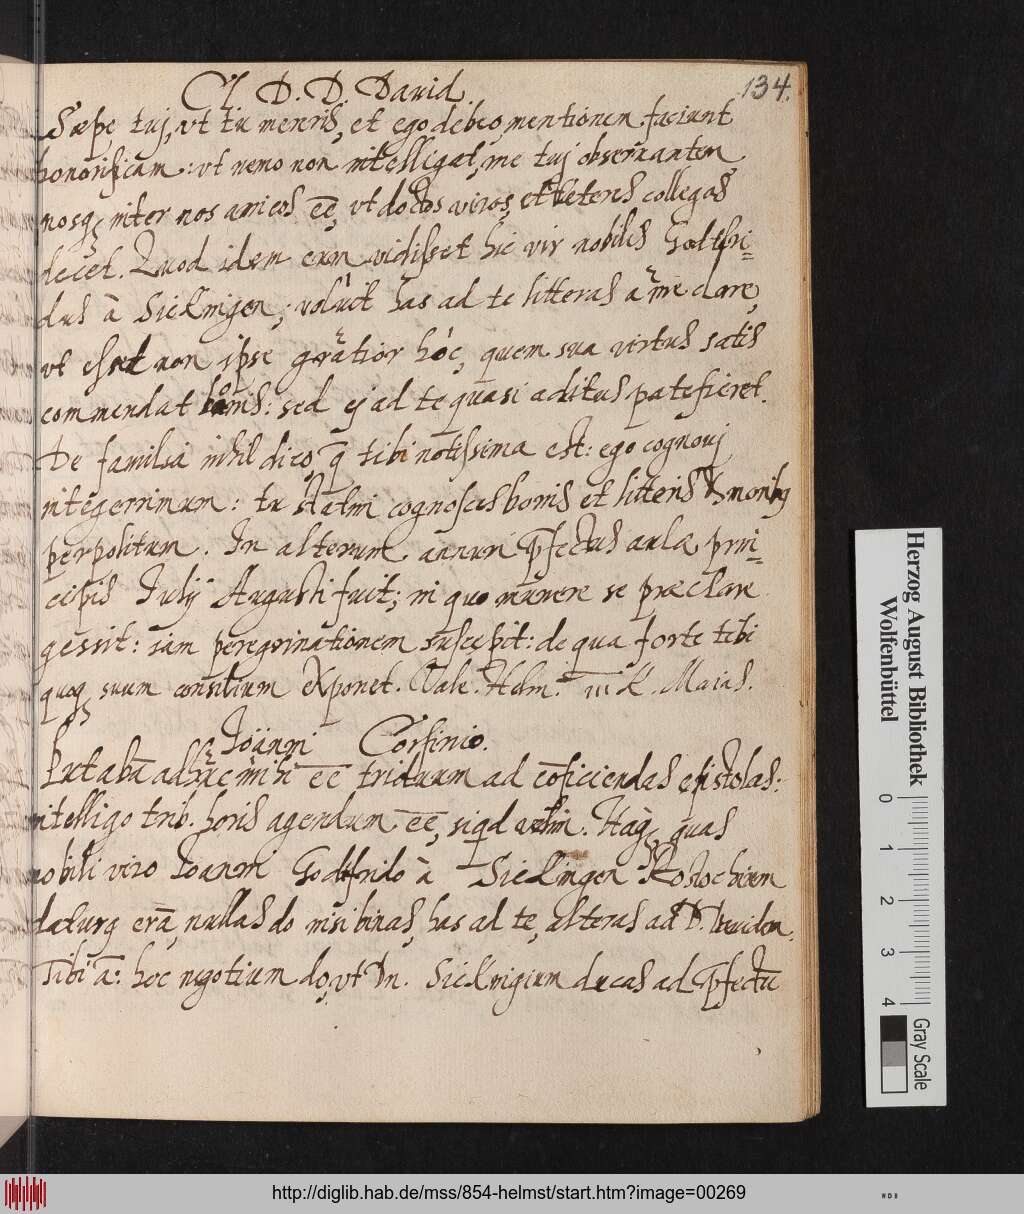 134.
Cl. D. D. David.
Sæpe tuj, vt tu mereris, et ego debeo, mentionem faciunt
honorificam: vt nemo non intelligat, me tuj obseruantem
nosq₃ inter nos amicos eē, vt doctos viros, et veteres collegas
decet. Quod idem cum vidisset hic vir nobilis Godtfri-
dus à Sickingen; voluit has ad te litteras a me dare,
vt esset non ipse gratior hoc, quem sua virtus satis
commendat bonis: sed ej ad te quasi aditus patefieret.
De familia nihil dico, q̄ tibi notissima est: ego cognouj
integerrimum: tu statim cognosces bonis et litteris & moribus
perpolitum. In alterum annum p̄fectus aulæ prin-
cipis Julij Augusti fuit; in quo munere se præclare
gessit: iam peregrinationem suscepit: de qua forte tibi
quoq₃ suum consilium exponet. Vale. Helm. iii K. Maias.
Joanni Corfinio.
Putabā adhuc mihi eē triduum ad cōficiendas epistolas:
intelligo trib. horis agendum eē, siqd velim. Itaq₃ quas
nobili viro Joanni Godtfrido à Sickingen Rostochium
daturus erā, nullas do nisi binas, has ad te, alteras ad D. Dauidem.
Tibi a: hoc negotium do, vt Dn. Sickingium ducas ad p̄fectū
Herzog August Bibliothek
Wolfenbüttel
0 1 2 3 4
Gray Scale
http://diglib.hab.de/mss/854-helmst/start.htm?image=00269